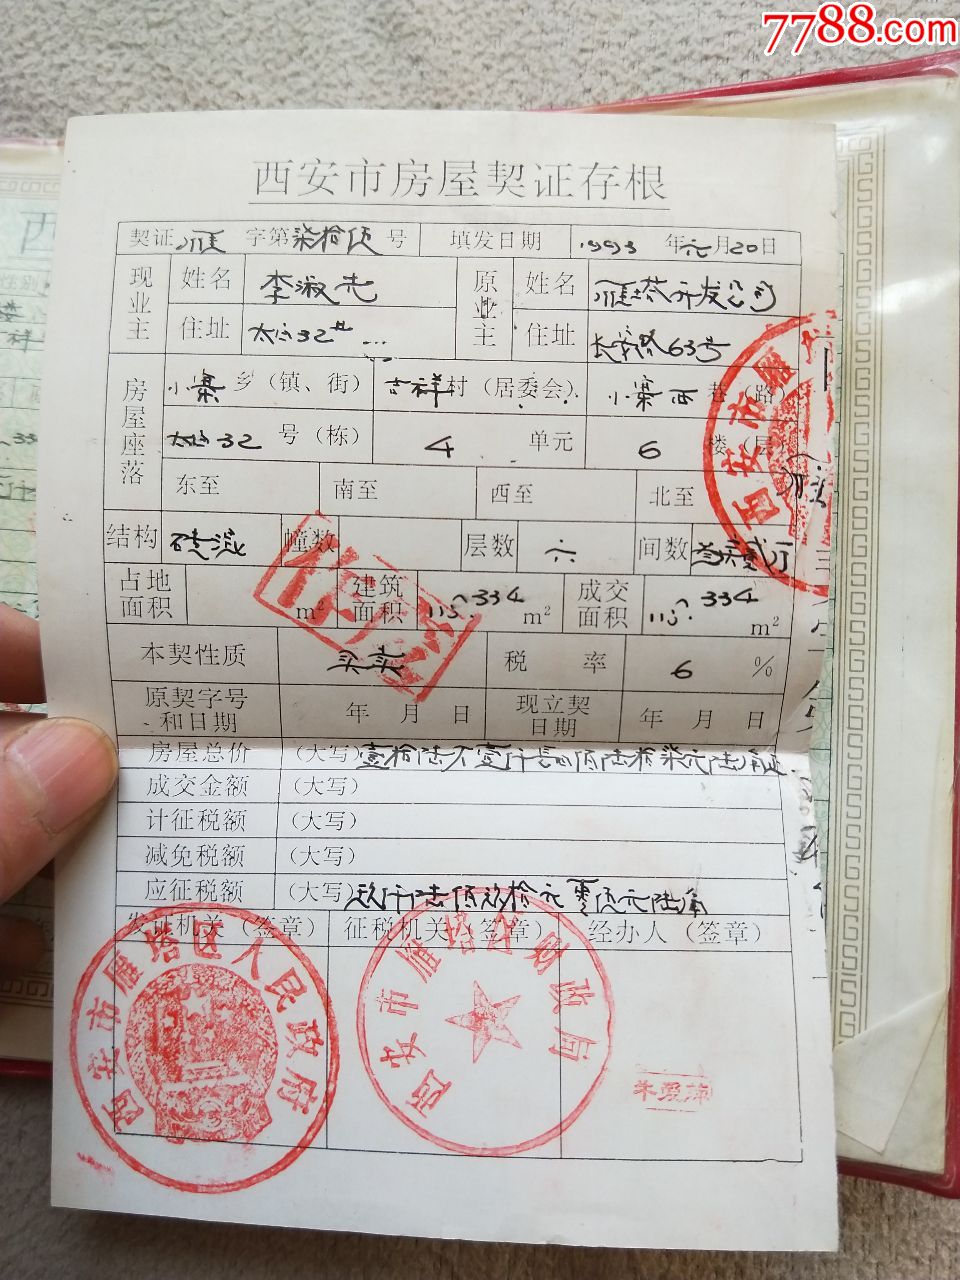 7788.com
西安市房屋契证存根
契证 雁 字第柒拾伍号 填发日期 1993年元月20日
现业主 姓名 李淑志 原业主 姓名 雁塔开发公司
住址 住址 长安路63号
房屋座落 小寨乡（镇、街） 吉祥村（居委会） 小寨西巷（路）
32号（栋） 4单元 6楼（层）
东至 南至 西至 北至
结构 砖混 幢数 层数 六 间数 叁室贰厅
占地面积 m² 建筑面积 334 m² 成交面积 334 m²
本契性质 买卖 税率 6%
原契字号和日期 年月日 现立契日期 年月日
房屋总价 （大写）壹拾陆万壹仟 佰陆拾柒元陆角
成交金额 （大写）
计征税额 （大写）
减免税额 （大写）
应征税额 （大写）玖仟陆佰玖拾 元零伍元陆角
发证机关（签章） 征税机关（签章） 经办人（签章）
西安市雁塔区人民政府
西安市雁塔区财政局
朱爱萍
西安市雁塔